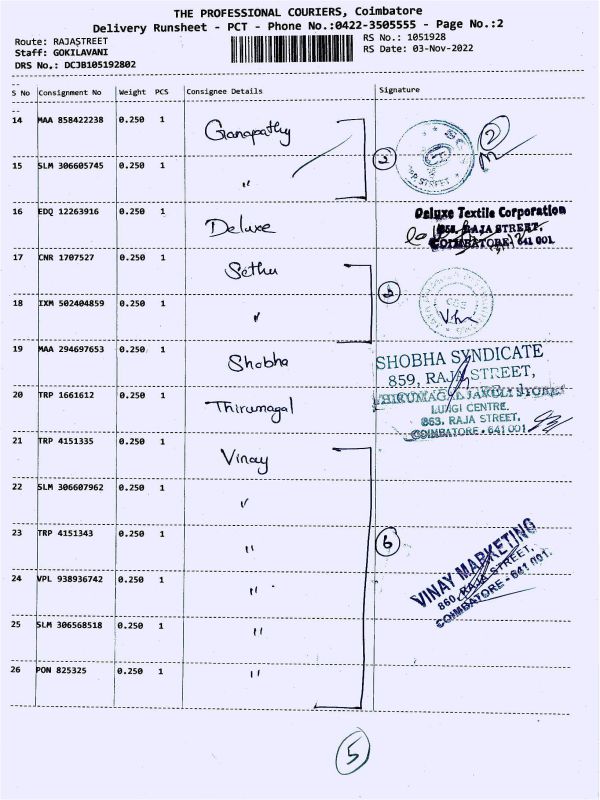 THE PROFESSIONAL COURIERS, Coimbatore
Delivery Runsheet - PCT - Phone No.:0422-3505555 - Page No.:2
Route: RAJASTREET
Staff: GOKILAVANI
DRS No.: DCJB105192802
RS No.: 1051928
RS Date: 03-Nov-2022
S No Consignment No Weight PCS Consignee Details Signature
14 MAA 858422238 0.250 1 Ganapathy
2
2
15 SLM 306605745 0.250 1 "
16 EDQ 12263916 0.250 1 Deluxe
Deluxe Textile Corporation
RAJA STREET,
COIMBATORE- 641 001.
17 CNR 1707527 0.250 1 Sethu
2
18 IXM 502404859 0.250 1 "
19 MAA 294697653 0.250 1 Shobha
SHOBHA SYNDICATE
859, RAJA STREET,
20 TRP 1661612 0.250 1 Thirumagal
THIRUMAGAL JAVULI STORES
LUNGI CENTRE.
863, RAJA STREET,
COIMBATORE - 641 001
21 TRP 4151335 0.250 1 Vinay
22 SLM 306607962 0.250 1 "
23 TRP 4151343 0.250 1 "
6
VINAY MARKETING
860, RAJA STREET,
COIMBATORE - 641 001.
24 VPL 938936742 0.250 1 "
25 SLM 306568518 0.250 1 "
26 PON 825325 0.250 1 "
5